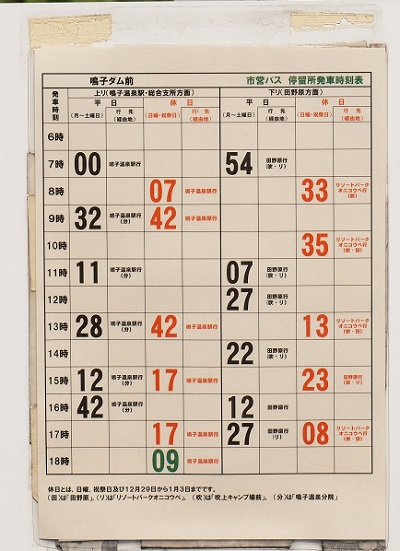 鳴子ダム前 市営バス 停留所発車時刻表
発車時刻 上り(鳴子温泉駅・総合支所方面) 下り(田野原方面)
平日 休日 平日 休日
(月〜土曜日) 行先(経由地) (日曜・祝祭日) 行先(経由地) (月〜土曜日) 行先(経由地) (日曜・祝祭日) 行先(経由地)
6時
7時 00 鳴子温泉駅行 54 田野原行(吹・リ)
8時 07 鳴子温泉駅行 33 リゾートパークオニコウベ行(吹)
9時 32 鳴子温泉駅行(分) 42 鳴子温泉駅行
10時 35 リゾートパークオニコウベ行
11時 11 鳴子温泉駅行(分) 07 田野原行(吹・リ)
12時 27 田野原行(吹・リ)
13時 28 鳴子温泉駅行(分) 42 鳴子温泉駅行 13 リゾートパークオニコウベ行
14時 22 田野原行(吹・リ)
15時 12 鳴子温泉駅行(分) 17 鳴子温泉駅行 23 田野原行(吹・リ)
16時 42 鳴子温泉駅行(分) 12 田野原行
17時 17 鳴子温泉駅行 27 田野原行(リ) 08 リゾートパークオニコウベ行
18時 09 鳴子温泉駅行
休日とは、日曜、祝祭日及び12月29日から1月3日までです。
(田)は「田野原」、(リ)は「リゾートパークオニコウベ」、(吹)は「吹上キャンプ場前」、(分)は「鳴子温泉分院」